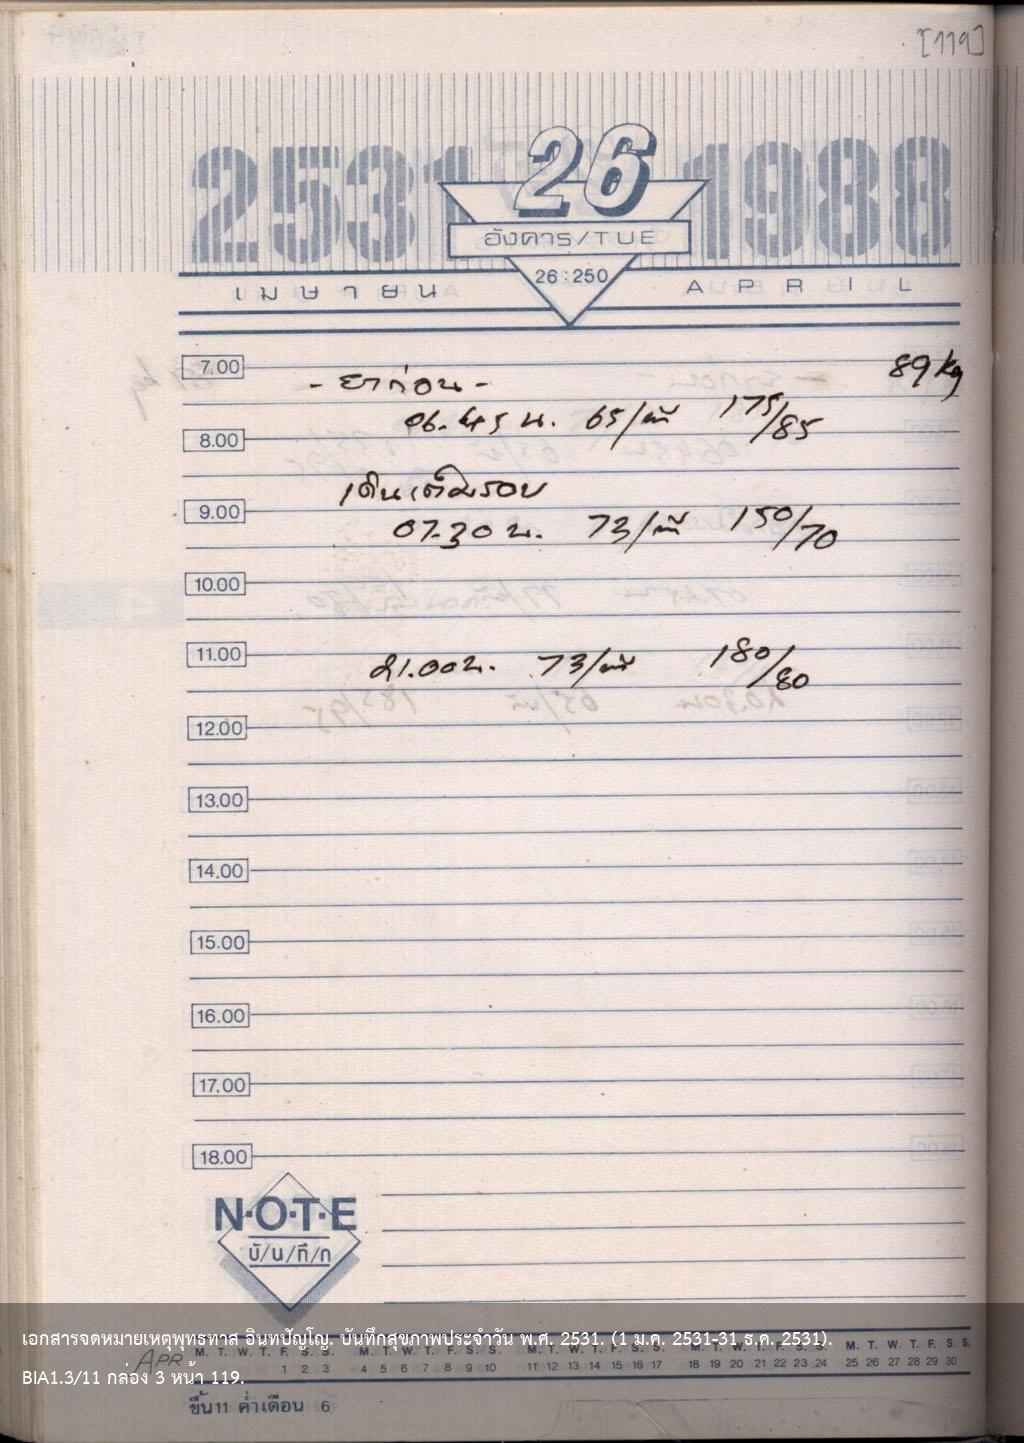 [119]
2531 26 1988
อังคาร/TUE
26:250
เมษายน APRIL
7.00
89 kg
- ยาก่อน -
06.45 น. 65/นาที 175/85
8.00
เดินเต็มรอบ
9.00
07.30 น. 73/นาที 150/70
10.00
11.00
21.00 น. 73/นาที 180/80
12.00
13.00
14.00
15.00
16.00
17.00
18.00
N·O·T·E
บั/น/ทึ/ก
เอกสารจดหมายเหตุพุทธทาส อินทปัญโญ. บันทึกสุขภาพประจำวัน พ.ศ. 2531. (1 ม.ค. 2531-31 ธ.ค. 2531).
APR M. T. W. T. F. S. S. M. T. W. T. F. S. S. M. T. W. T. F. S. S. M. T. W. T. F. S. S. M. T. W. T. F. S. S.
1 2 3 4 5 6 7 8 9 10 11 12 13 14 15 16 17 18 19 20 21 22 23 24 25 26 27 28 29 30
BIA1.3/11 กล่อง 3 หน้า 119.
ขึ้น 11 ค่ำ เดือน 6